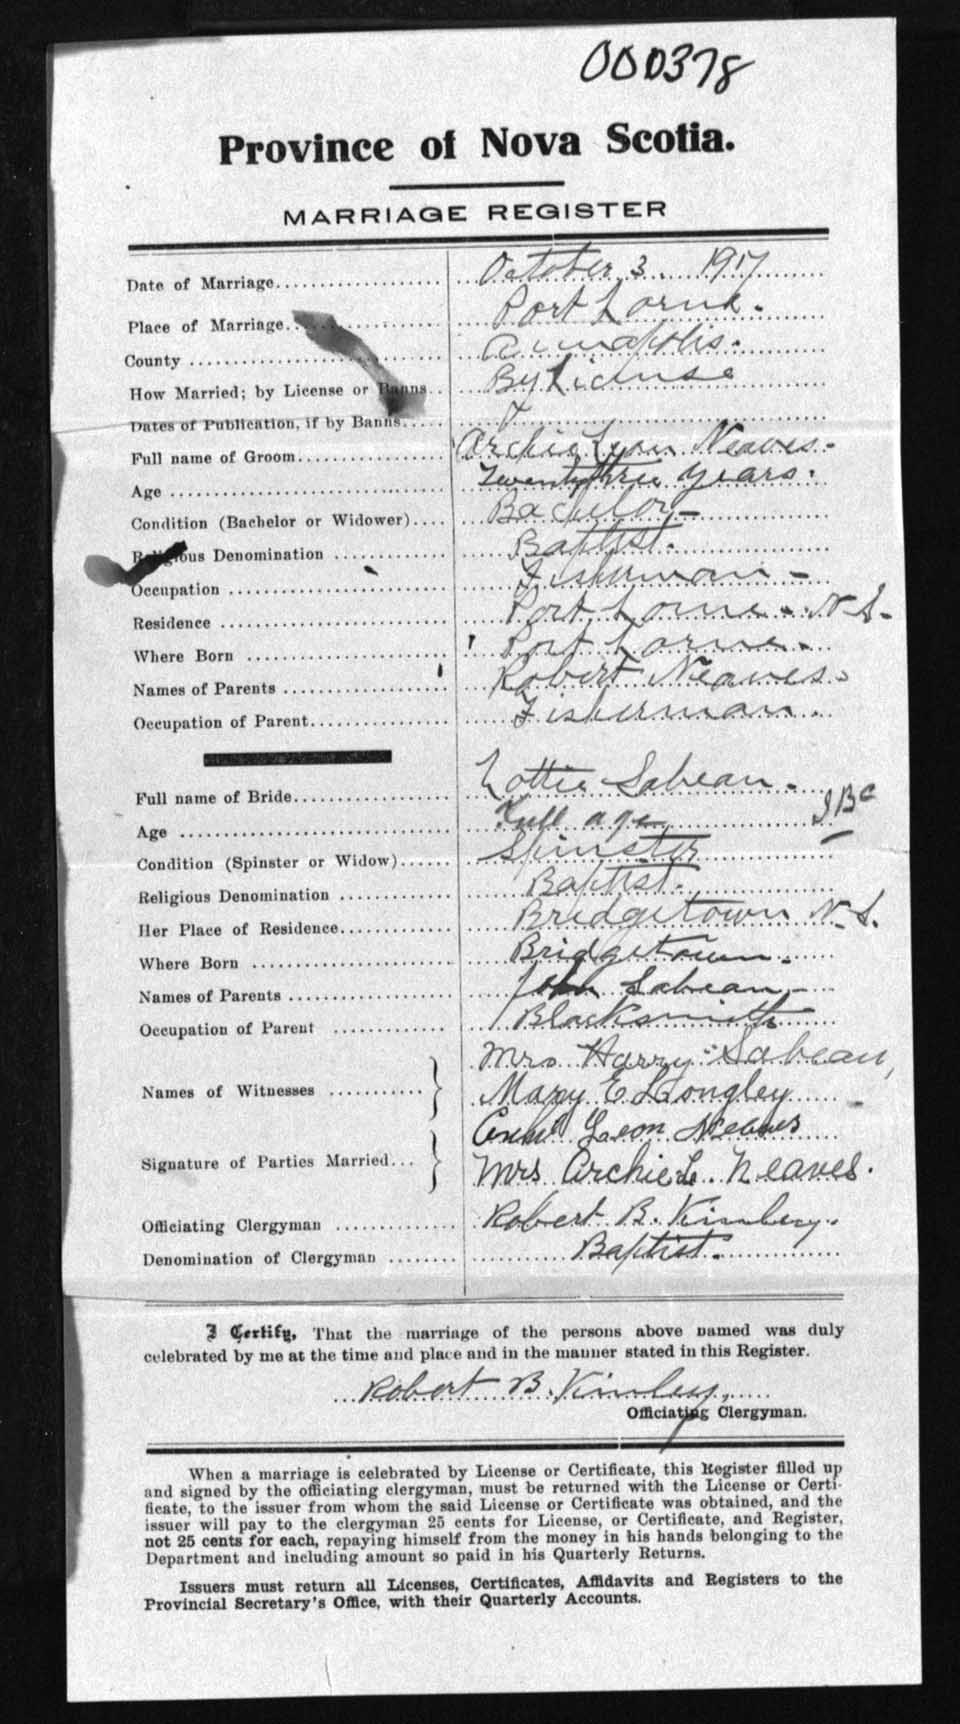 000378
Province of Nova Scotia.
MARRIAGE REGISTER
Date of Marriage October 3. 1917
Place of Marriage Port Lorne.
County Annapolis.
How Married; by License or Banns By License
Dates of Publication, if by Banns
Full name of Groom Archie Lyon Neaves.
Age Twenty three years.
Condition (Bachelor or Widower) Bachelor
Religious Denomination Baptist.
Occupation Fisherman
Residence Port Lorne N.S.
Where Born Port Lorne.
Names of Parents Robert Neaves.
Occupation of Parent Fisherman.
Full name of Bride Lottie Sabean.
Age Full age
Condition (Spinster or Widow) Spinster
Religious Denomination Baptist.
Her Place of Residence Bridgetown N.S.
Where Born Bridgetown.
Names of Parents John Sabean
Occupation of Parent Blacksmith
Names of Witnesses Mrs. Harry Sabean,
Mary E Longley
Signature of Parties Married Leon Neaves
Mrs Archie L. Neaves.
Officiating Clergyman Robert B. Kinley.
Denomination of Clergyman Baptist.
I Certify, That the marriage of the persons above named was duly
celebrated by me at the time and place and in the manner stated in this Register.
Robert B. Kinley,
Officiating Clergyman.
When a marriage is celebrated by License or Certificate, this Register filled up
and signed by the officiating clergyman, must be returned with the License or Certi-
ficate, to the issuer from whom the said License or Certificate was obtained, and the
issuer will pay to the clergyman 25 cents for License, or Certificate, and Register,
not 25 cents for each, repaying himself from the money in his hands belonging to the
Department and including amount so paid in his Quarterly Returns.
Issuers must return all Licenses, Certificates, Affidavits and Registers to the
Provincial Secretary's Office, with their Quarterly Accounts.